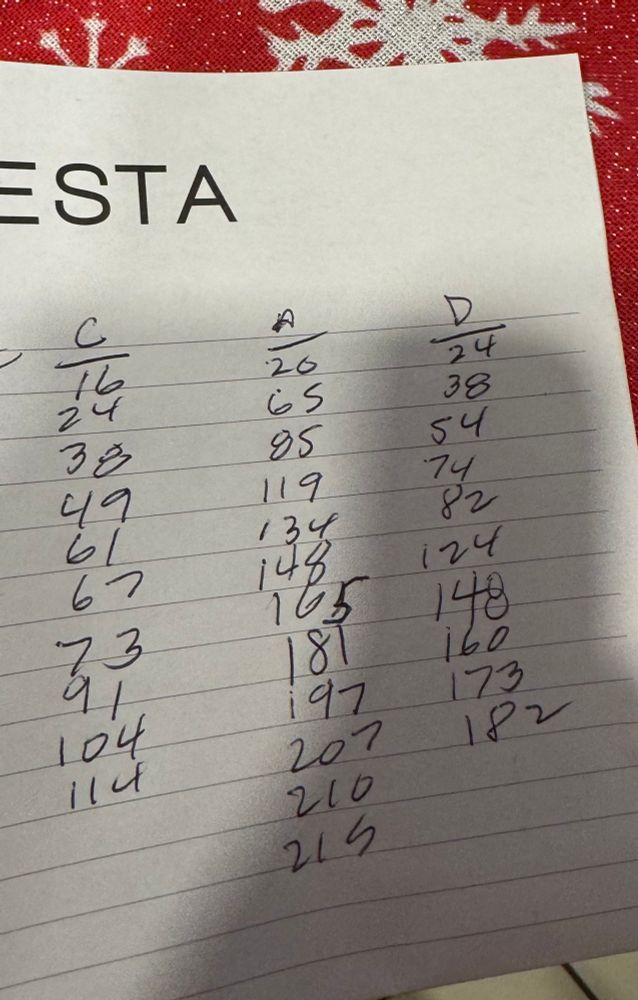 ESTA
C A D
16 20 24
24 65 38
38 85 54
49 119 74
61 134 82
67 148 124
73 165 148
91 181 160
104 197 173
114 207 182
210
215